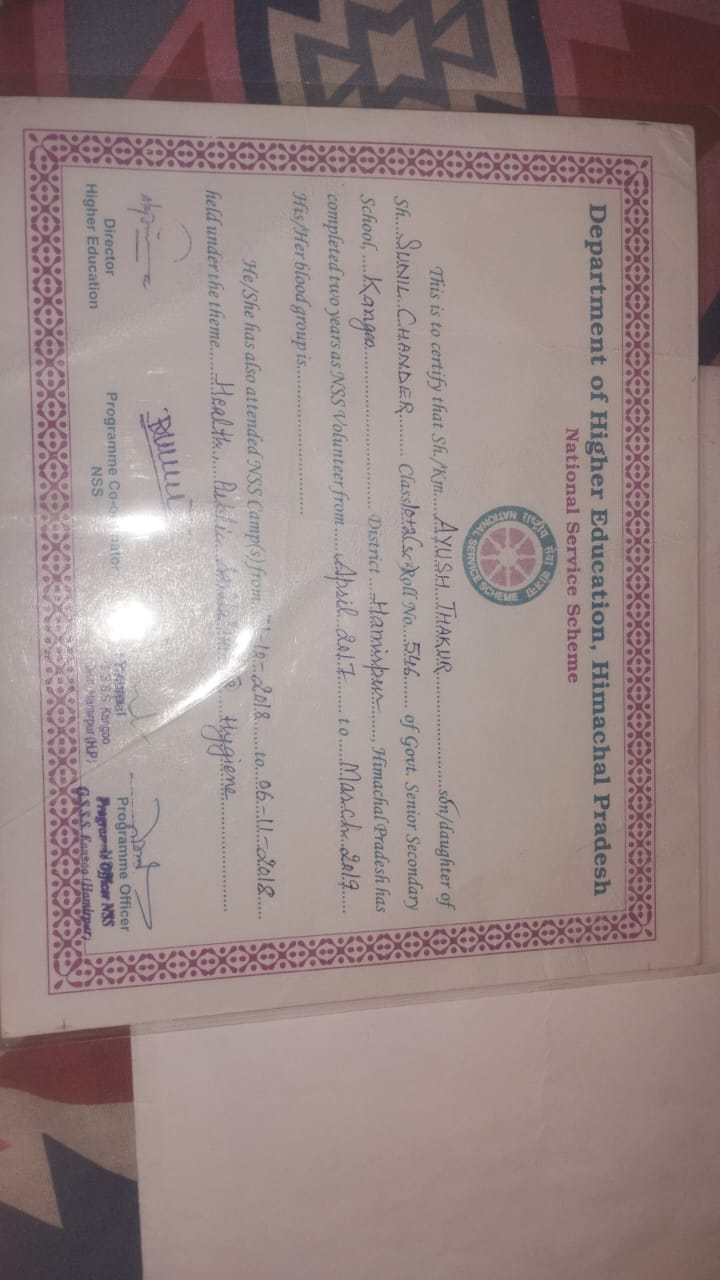 Department of Higher Education, Himachal Pradesh
National Service Scheme
राष्ट्रीय सेवा योजना
NATIONAL SERVICE SCHEME
This is to certify that Sh./Km....AYUSH THAKUR..................son/daughter of
Sh....SUNIL CHANDER....... Class 10+2(sc) Roll No...546...... of Govt. Senior Secondary
School, ...Kangoo.................... District ...Hamirpur......, Himachal Pradesh has
completed two years as NSS Volunteer from.....April 2017....... to ....March 2019.....
His/Her blood group is.........................
He/She has also attended NSS Camp(s) from -10-2018 ....to..06-11-2018....
held under the theme......Health, Public Hygiene.....................
Director
Higher Education
Programme Co-
NSS
Principal
G.S.S.S. Kangoo
Distt. Hamirpur (H.P.)
Programme Officer
Program Officer NSS
G.S.S.S. Kangoo (Hamirpur)